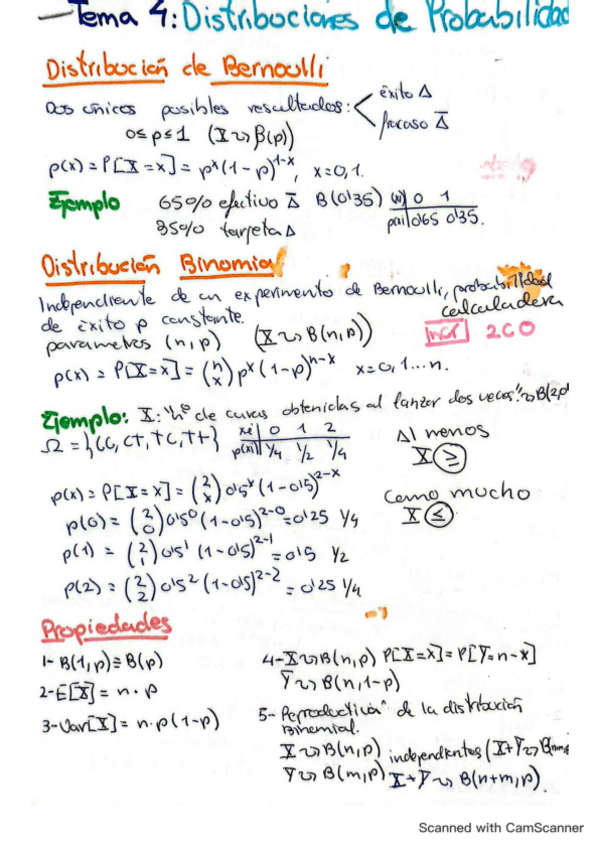 Tema 4: Distribuciones de Probabilidad
Distribución de Bernoulli
Dos únicos posibles resultados: éxito Δ
fracaso Δ̅
0≤p≤1 (X ↝ B(p))
p(x) = P[X=x] = pˣ(1-p)¹⁻ˣ, x=0,1.
Ejemplo 65% efectivo Δ̅ B(0'35) (xi) 0 1
35% tarjeta Δ p(xi) 0'65 0'35.
Distribución Binomial
Independiente de un experimento de Bernoulli, probabilidad
de éxito p constante. calculadora
parametros (n,p) (X ↝ B(n,p)) nCr 2C0
p(x) = P[X=x] = (n x) pˣ (1-p)ⁿ⁻ˣ x=0,1...n.
Ejemplo: X: "nº de caras obtenidas al lanzar dos veces" ↝ B(2,
Ω = {CC, C+, +C, ++} xi 0 1 2
p(xi) 1/4 1/2 1/4
Al menos
X ≥
p(x) = P[X=x] = (2 x) 0'5ˣ (1-0'5)²⁻ˣ
Como mucho
X ≤
p(0) = (2 0) 0'5⁰ (1-0'5)²⁻⁰ = 0'25 1/4
p(1) = (2 1) 0'5¹ (1-0'5)²⁻¹ = 0'5 1/2
p(2) = (2 2) 0'5² (1-0'5)²⁻² = 0'25 1/4
Propiedades
1- B(1,p) ≡ B(p)
2- E[X] = n·p
3- Var[X] = n·p(1-p)
4- X ↝ B(n,p) P[X=x] = P[Y=n-x]
Y ↝ B(n,1-p)
5- Reproductiva" de la distribución
Binomial.
X ↝ B(n,p) independientes (X+Y ↝ B
Y ↝ B(m,p) X+Y ↝ B(n+m,p).
Scanned with CamScanner